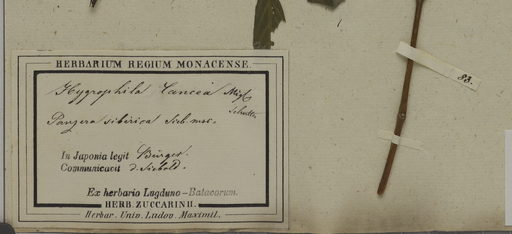 HERBARIUM REGIUM MONACENSE.
Hygrophila lancea Miq.
Panzera siberica Sieb. msc.
In Japonia legit Bürger.
Communicavit v. Siebold.
Ex herbario Lugduno-Batavorum.
HERB. ZUCCARINII.
Herbar. Univ. Ludov. Maximil.
83.